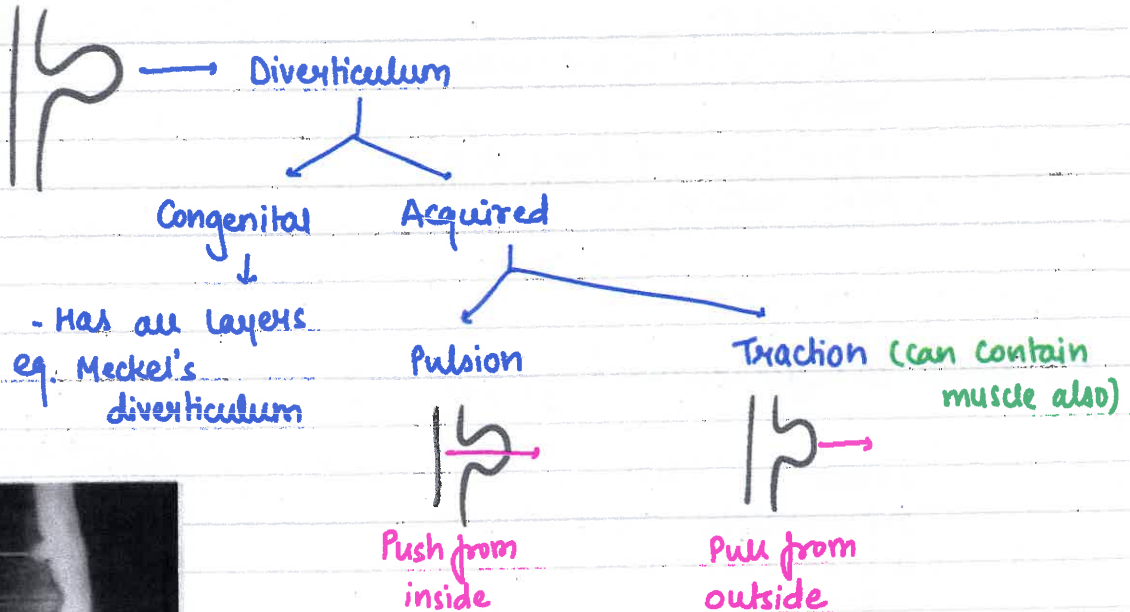 Diverticulum
Congenital
Acquired
- Has all layers
eg. Meckel's
diverticulum
Pulsion
Traction (can contain
muscle also)
Push from
inside
Pull from
outside